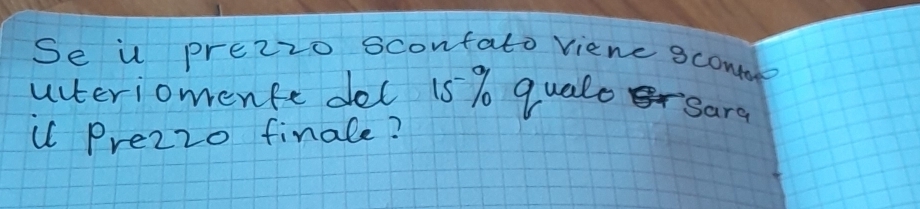 Se il prezzo scontato viene scontato
ulteriormente del 15% quale sarà
il prezzo finale?